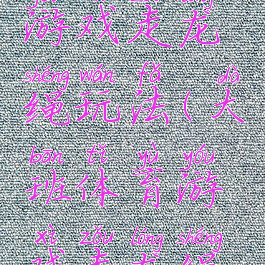 游戏走龙
shéng wán fǎ dà
绳玩法(大
bān tǐ yù yóu
班体育游
xì zǒu lóng shéng
戏走龙绳